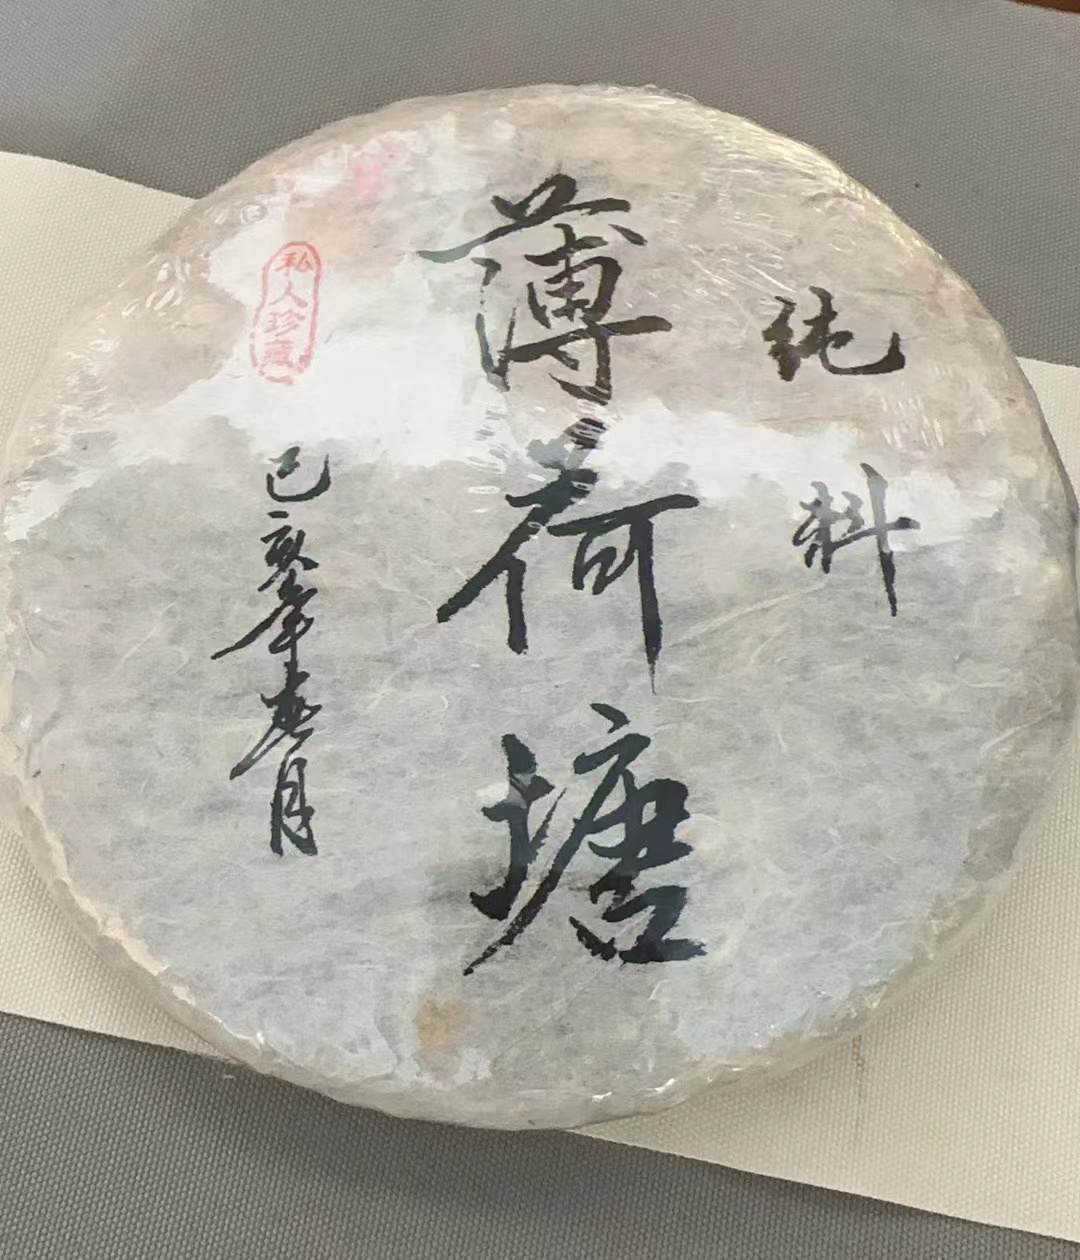 纯料
薄荷塘
私人珍藏
己亥年春月